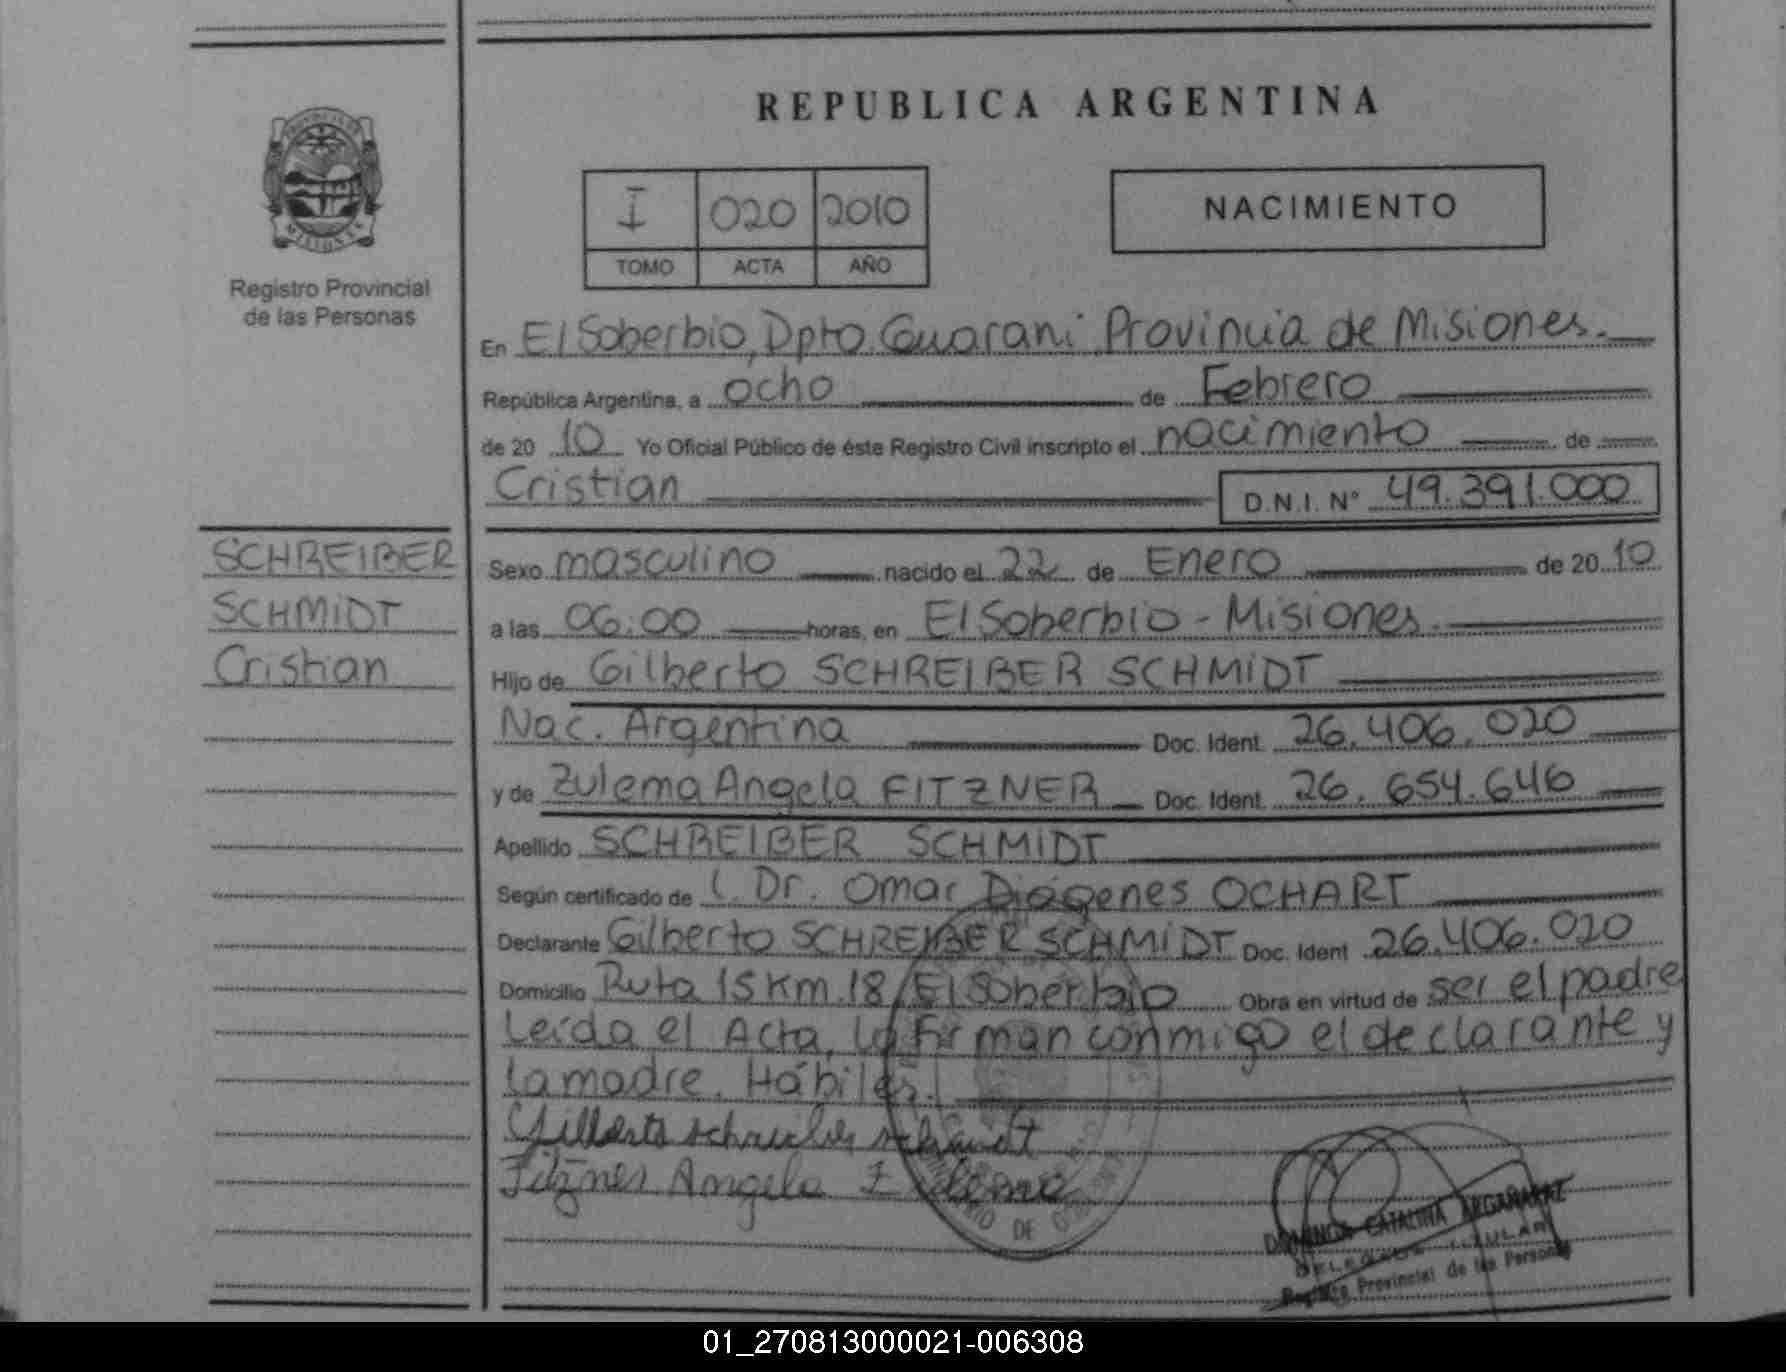 REPUBLICA ARGENTINA
PROVINCIA DE
MISIONES
Registro Provincial
de las Personas
I 020 2010
TOMO ACTA AÑO
NACIMIENTO
En El Soberbio, Dpto. Guarani Provincia de Misiones.
República Argentina, a ocho de Febrero
de 20 10 Yo Oficial Público de éste Registro Civil inscripto el nacimiento de
Cristian D.N.I. N° 49.391.000
SCHREIBER
SCHMIDT
Cristian
Sexo masculino nacido el 22 de Enero de 20 10
a las 06:00 horas, en El Soberbio - Misiones.
Hijo de Gilberto SCHREIBER SCHMIDT
Nac. Argentina Doc. Ident. 26.406.020
y de Zulema Angela FITZNER Doc. Ident. 26.654.646
Apellido SCHREIBER SCHMIDT
Según certificado de Dr. Omar Diógenes OCHART
Declarante Gilberto SCHREIBER SCHMIDT Doc. Ident 26.406.020
Domicilio Ruta 15 Km.18, El Soberbio Obra en virtud de ser el padre
Leída el Acta, la firman conmigo el declarante y
la madre. Hábiles.
Gilberto schreiber schmidt
Fitzner Angela Zulema
MINISTERIO DE GOBIERNO
CATALINA ARGAÑARAZ
DELEGADA TITULAR
Registro Provincial de las Personas
01_270813000021-006308